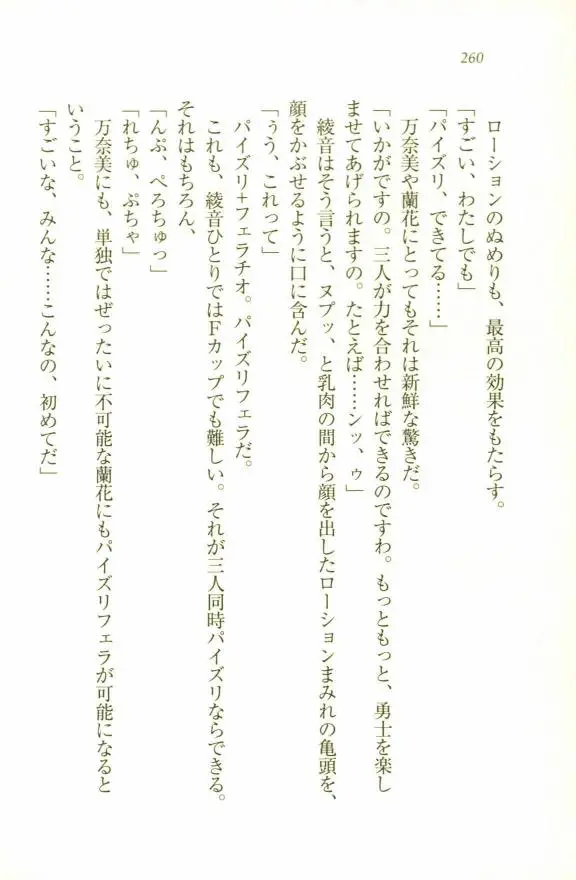 260
ローションのぬめりも、最高の効果をもたらす。
「すごい、わたしでも」
「パイズリ、できてる……」
万奈美や蘭花にとってもそれは新鮮な驚きだ。
「いかがですの。三人が力を合わせればできるのですわ。もっともっと、勇士を楽し
ませてあげられますの。たとえば……ンッ、ゥ」
綾音はそう言うと、ヌプッ、と乳肉の間から顔を出したローションまみれの亀頭を、
顔をかぶせるように口に含んだ。
「ぅう、これって」
パイズリ+フェラチオ。パイズリフェラだ。
これも、綾音ひとりではFカップでも難しい。それが三人同時パイズリならできる。
それはもちろん、
「んぷ、ぺろちゅっ」
「れちゅ、ぷちゃ」
万奈美にも、単独ではぜったいに不可能な蘭花にもパイズリフェラが可能になると
いうこと。
「すごいな、みんな……こんなの、初めてだ」